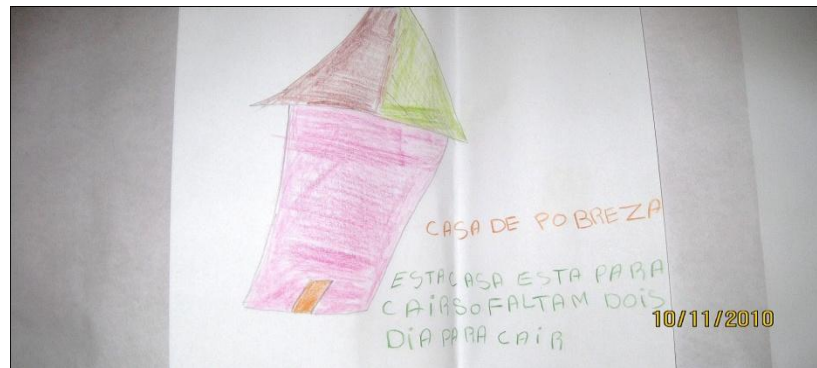 CASA DE POBREZA
ESTACASA ESTA PARA
CAIRSOFALTAM DOIS
DIA PARA CAIR
10/11/2010